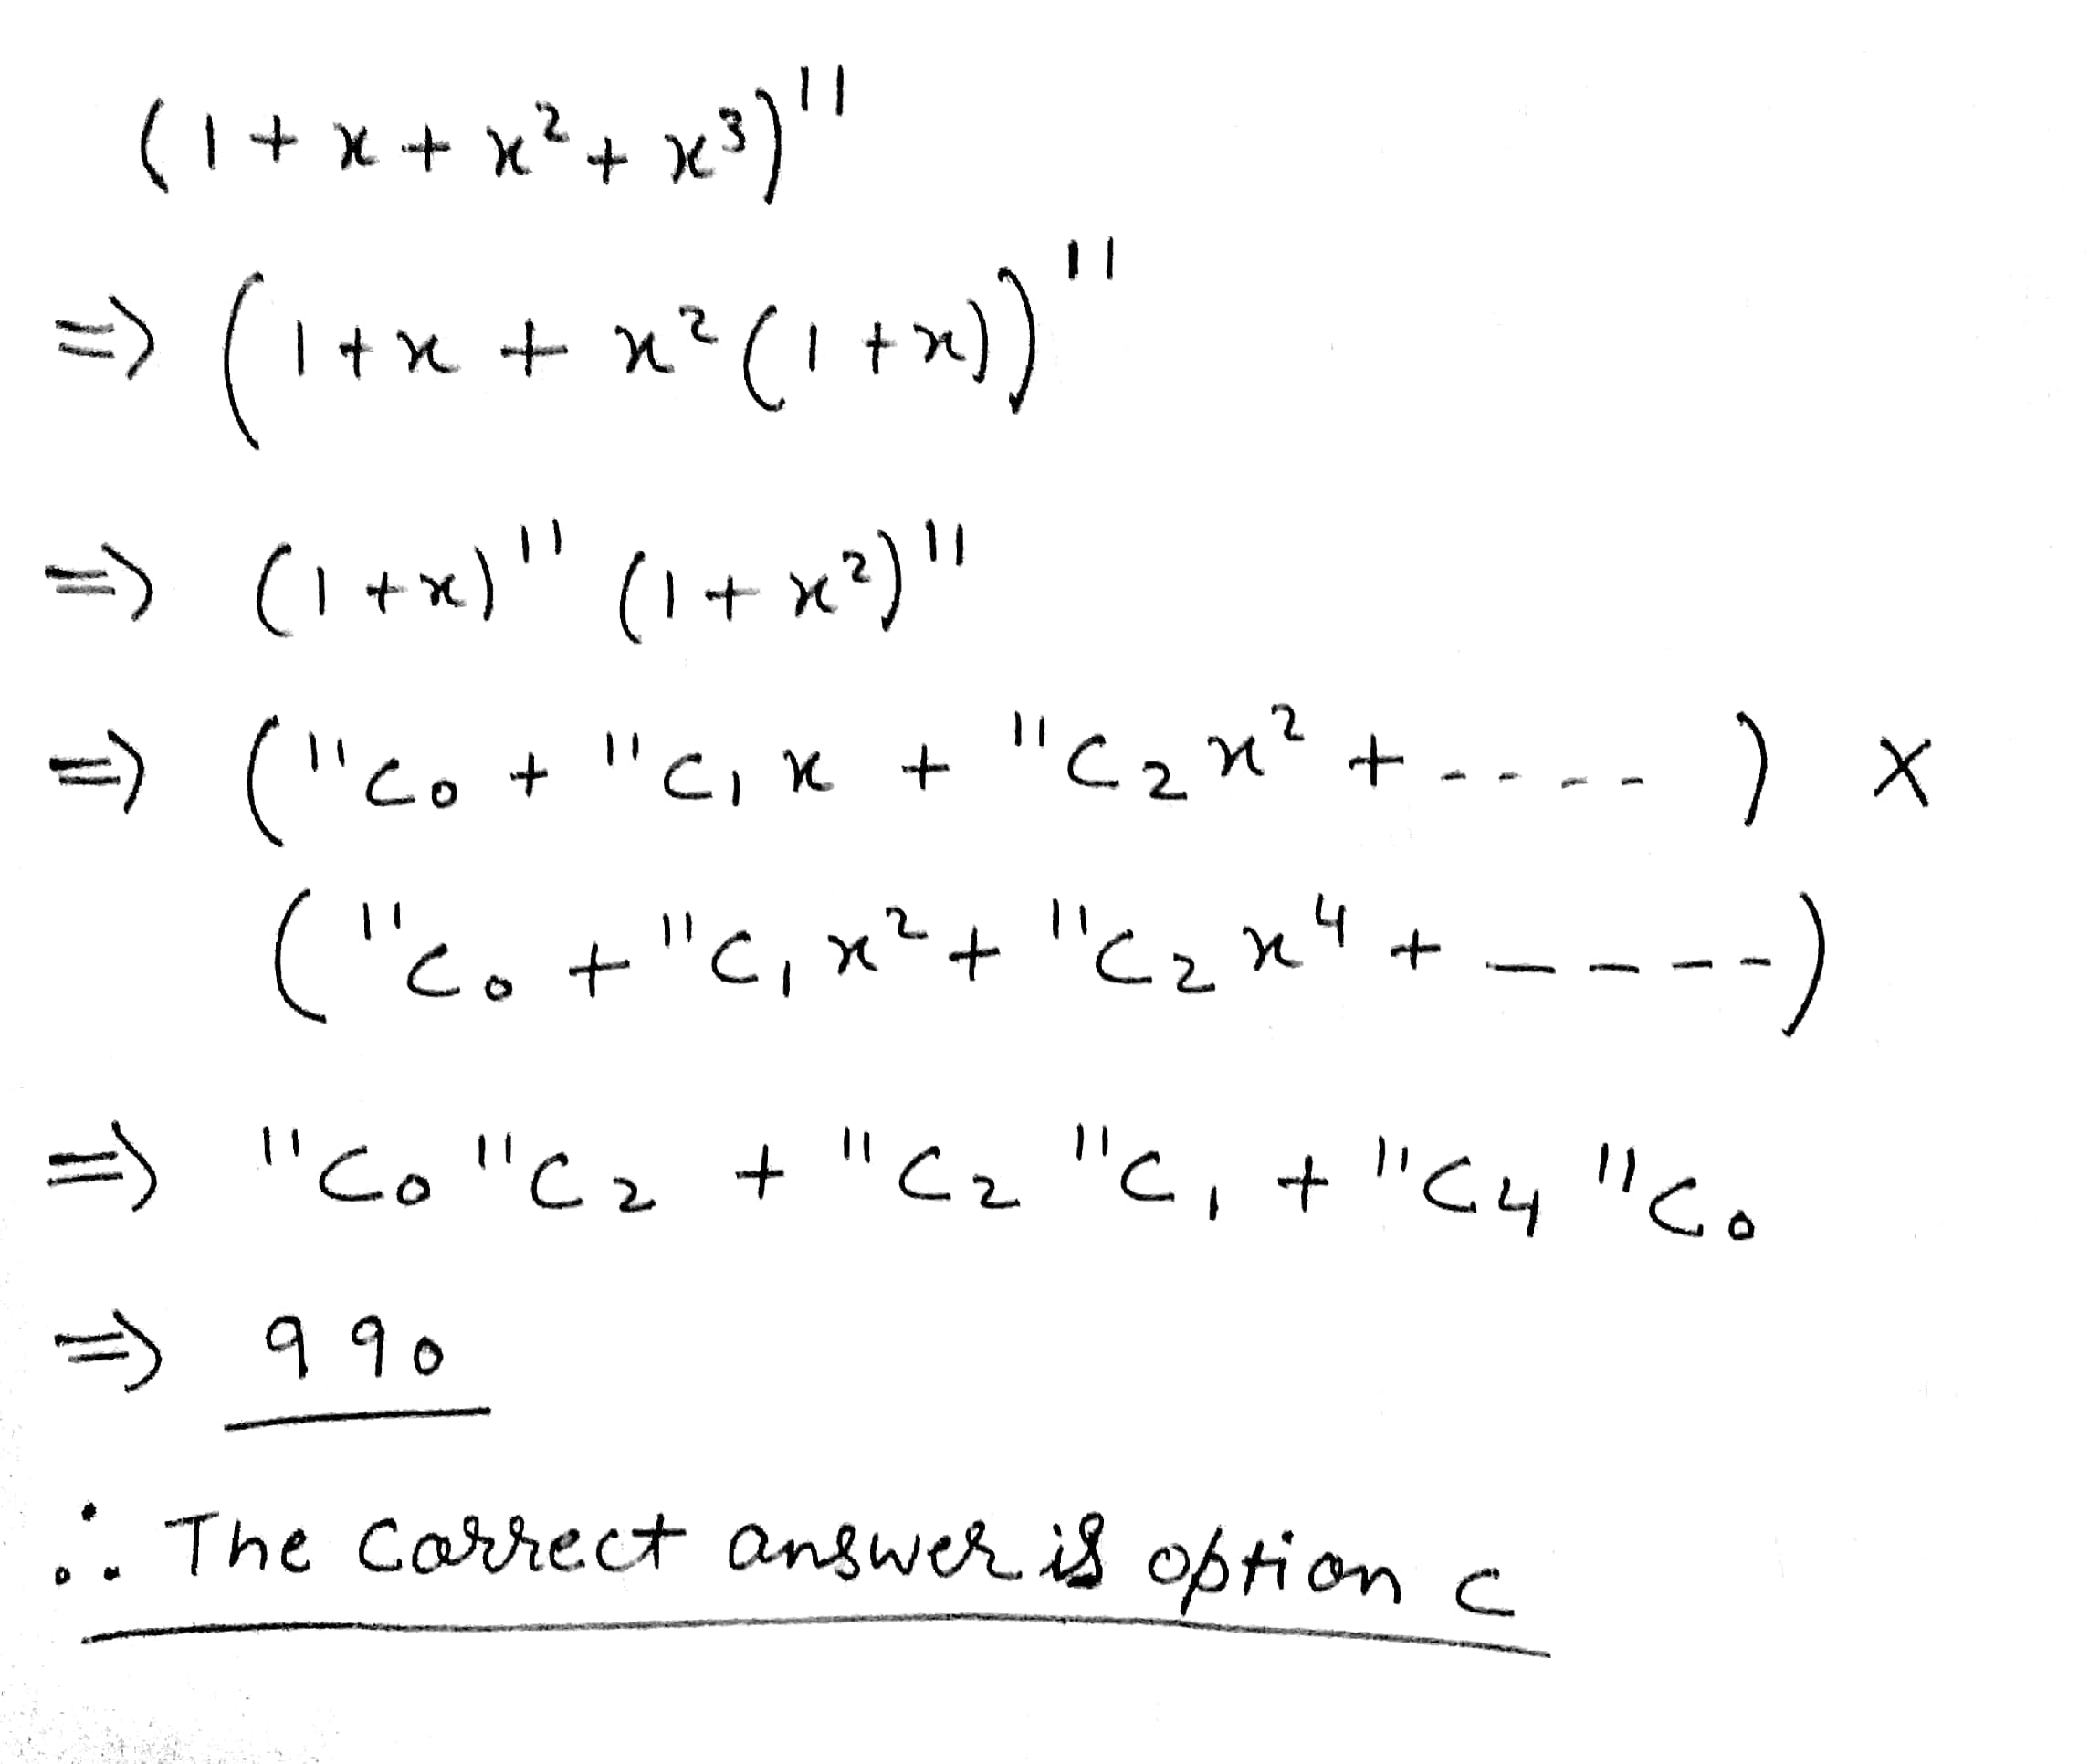 (1 + x + x² + x³)¹¹
⇒ (1 + x + x² (1 + x))¹¹
⇒ (1 + x)¹¹ (1 + x²)¹¹
⇒ (¹¹C₀ + ¹¹C₁ x + ¹¹C₂ x² + - - - - - ) ×
(¹¹C₀ + ¹¹C₁ x² + ¹¹C₂ x⁴ + - - - - )
⇒ ¹¹C₀ ¹¹C₂ + ¹¹C₂ ¹¹C₁ + ¹¹C₄ ¹¹C₀
⇒ 990
∴ The correct answer is option C